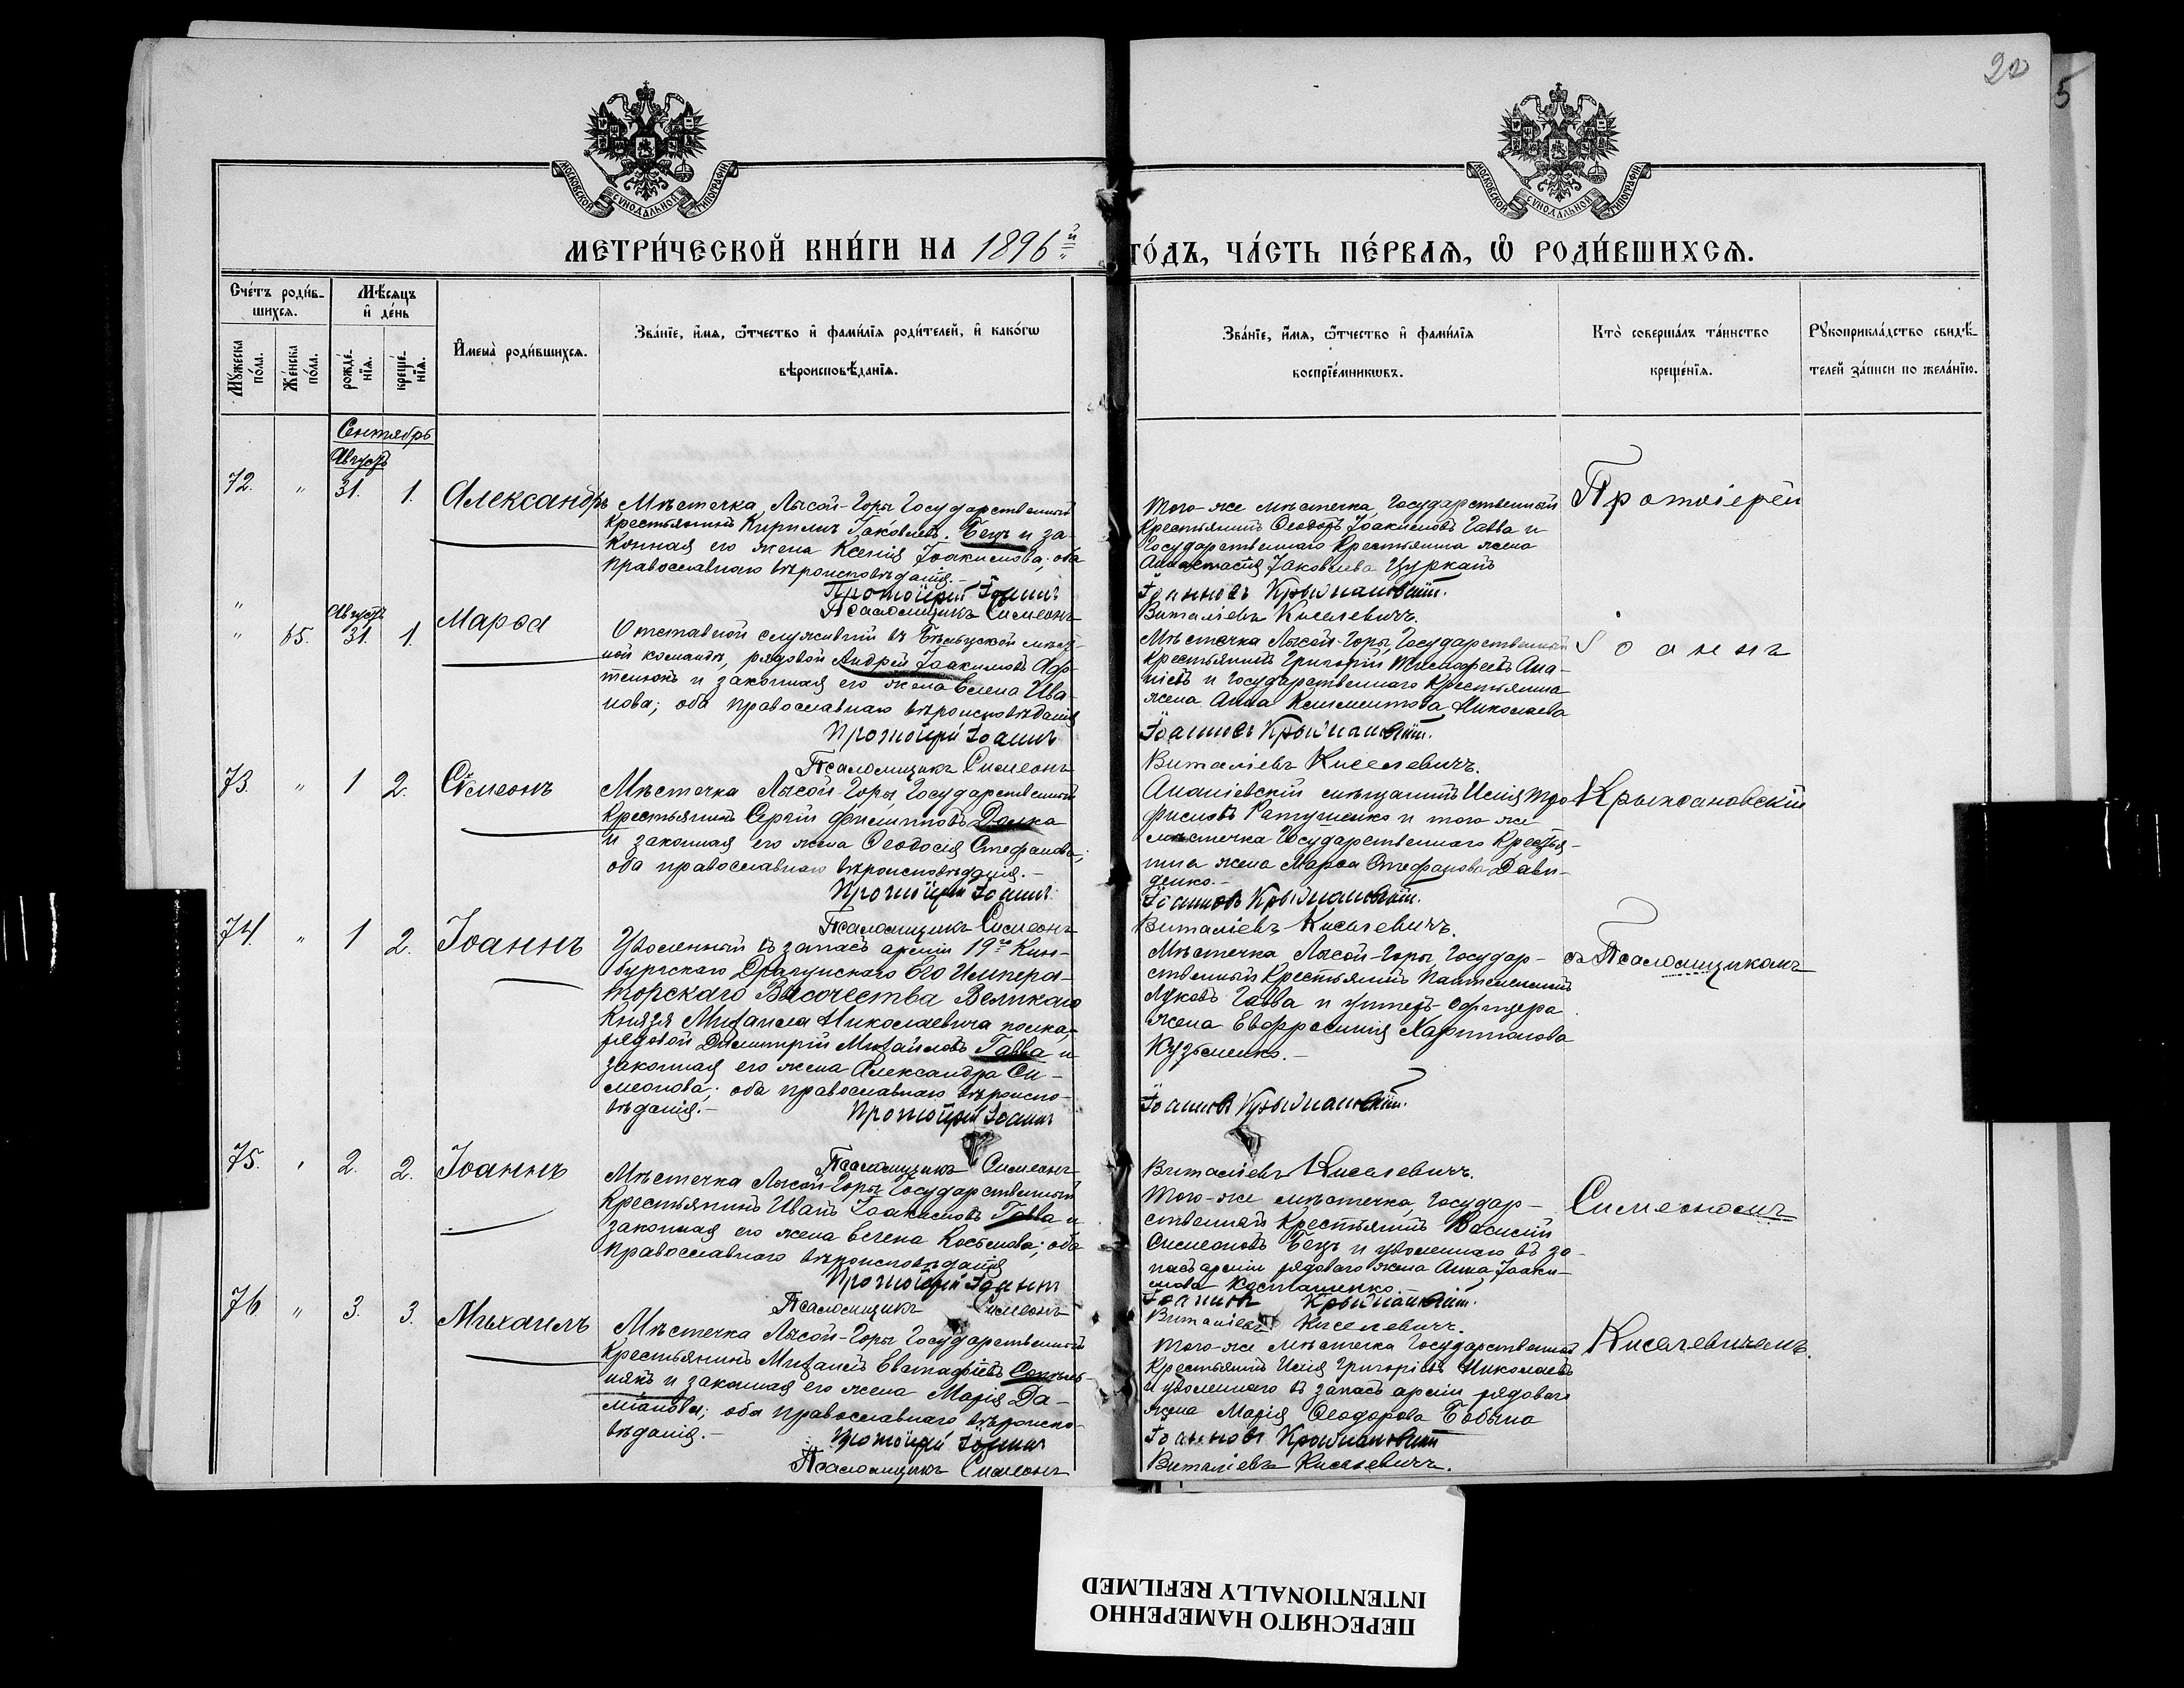 22
5
МОСКОВСКОЙ СУНОДАЛЬНОЙ ТИПОГРАФІИ
МОСКОВСКОЙ СУНОДАЛЬНОЙ ТИПОГРАФІИ
МЕТРИ́ЧЕСКОЙ КНИ́ГИ НА 1896й
ГО́ДЪ, ЧА́СТЬ ПЕ́РВАѦ, Ѡ РОДИ́ВШИХСѦ.
Сче́тъ роди́в-
шихсѧ.
Мѣ́сѧцъ
и҆ де́нь
И҆мена̀ роди́вшихсѧ.
Зва́нїе, и҆́мѧ, ѻ҆́тчество и҆ фами́лїѧ роди́телей, и҆ како́гѡ
вѣроисповѣ́данїѧ.
Мꙋ́жеска
по́ла.
Же́нска
по́ла.
рожде́-
нїѧ.
креще́-
нїѧ.
Зва́нїе, и҆́мѧ, ѻ҆́тчество и҆ фами́лїѧ
воспрїе́мникѡвъ.
Кто̀ соверша́лъ та́инство
креще́нїѧ.
Рꙋкоприкла́дство свидѣ́-
телей за́писи по жела́нїю.
Сентябрь
Августъ
72. " 31. 1. Александръ
Мѣстечка Лысой-Горы Государственный
Крестьянинъ Кириллъ Іаковлевъ Бецъ и за-
конная его жена Ксенія Іоакимова; оба
православнаго вѣроисповѣданія.-
Протоіерей Іоаннъ
Псаломщикъ Симеонъ
Того-же мѣстечка, Государственный
Крестьянинъ Ѳеодоръ Іоакимовъ Гавва и
Государственнаго Крестьянина жена
Анастасія Іаковлева Цуркань
Іоанновъ Крыжановскій.
Виталіевъ Киселевичъ.
Протоіерей
"
Августъ
" 65. 31. 1. Марѳа
Отставной служивший въ Бѣльцкой мѣст-
ной командѣ, рядовой Андрей Іоакимовъ
и законная его жена Елена Ива-
нова; оба православнаго вѣроисповѣданія
Протоіерей Іоаннъ
Псаломщикъ Симеонъ
Мѣстечка Лысой-Горы, Государственный
Крестьянинъ Григорій Тимоѳеевъ Ана-
ніевъ и Государственнаго Крестьянина
жена Анна Климентова Николаева
Іоанновъ Крыжановскій.
Виталіевъ Киселевичъ.
Іоаннъ
73. " 1 2. Сѵмеонъ
Мѣстечка Лысой-Горы, Государственный
Крестьянинъ Сергій Филипповъ Долка
и законная его жена Ѳеодосія Стефанова;
оба православнаго вѣроисповѣданія.-
Протоіерей Іоаннъ
Псаломщикъ Симеонъ
Ананіевскій мѣщанинъ Исаія Тро-
фимовъ Ратушенко и того же
мѣстечка Государственнаго Крестья-
нина жена Марѳа Стефанова Дави-
денко.-
Іоанновъ Крыжановскій.
Виталіевъ Киселевичъ.
Крыжановскій
74. " 1 2. Іоаннъ
Уволенный въ запасъ арміи 19го Кин-
бурнскаго Драгунскаго Его Импера-
торскаго Высочества Великаго
Князя Михаила Николаевича полка,
рядовой Димитрій Михайловъ Гавва и
законная его жена Александра Си-
меонова; оба православнаго вѣроиспо-
вѣданія.-
Протоіерей Іоаннъ
Псаломщикъ Симеонъ
Мѣстечка Лысой-Горы, Государ-
ственный Крестьянинъ Пантелеимонъ
Луковъ Гавва и унтеръ-офицера
жена Евфросинія Харитонова
Кузьменко.-
Іоанновъ Крыжановскій.
Виталіевъ Киселевичъ.
съ Псаломщикомъ
75. " 2. 2. Іоаннъ
Мѣстечка Лысой-Горы Государственный
Крестьянинъ Иванъ Іоакимовъ Гавва и
законная его жена Елена Косьмова; оба
православнаго вѣроисповѣданія
Протоіерей Іоаннъ
Псаломщикъ Симеонъ
Того-же мѣстечка, Государ-
ственный Крестьянинъ Василій
Симеоновъ Бецъ и уволеннаго въ за-
пасъ арміи рядового жена Анна Іоаки-
мова Косташенко.-
Іоанновъ Крыжановскій.
Виталіевъ Киселевичъ.
Симеономъ
76. " 3. 3. Михаилъ
Мѣстечка Лысой-Горы Государственный
Крестьянинъ Михаилъ Евстафіевъ
и законная его жена Марія Да-
міанова; оба православнаго вѣроиспо-
вѣданія.-
Протоіерей Іоаннъ
Псаломщикъ Симеонъ
Того-же мѣстечка Государственный
Крестьянинъ Исаія Григоріевъ Николаевъ
и уволеннаго въ запасъ арміи рядового
жена Марія Ѳеодорова Бабына
Іоанновъ Крыжановскій
Виталіевъ Киселевичъ.
Киселевичемъ.
ПЕРЕСНЯТО НАМЕРЕННО
INTENTIONALLY REFILMED